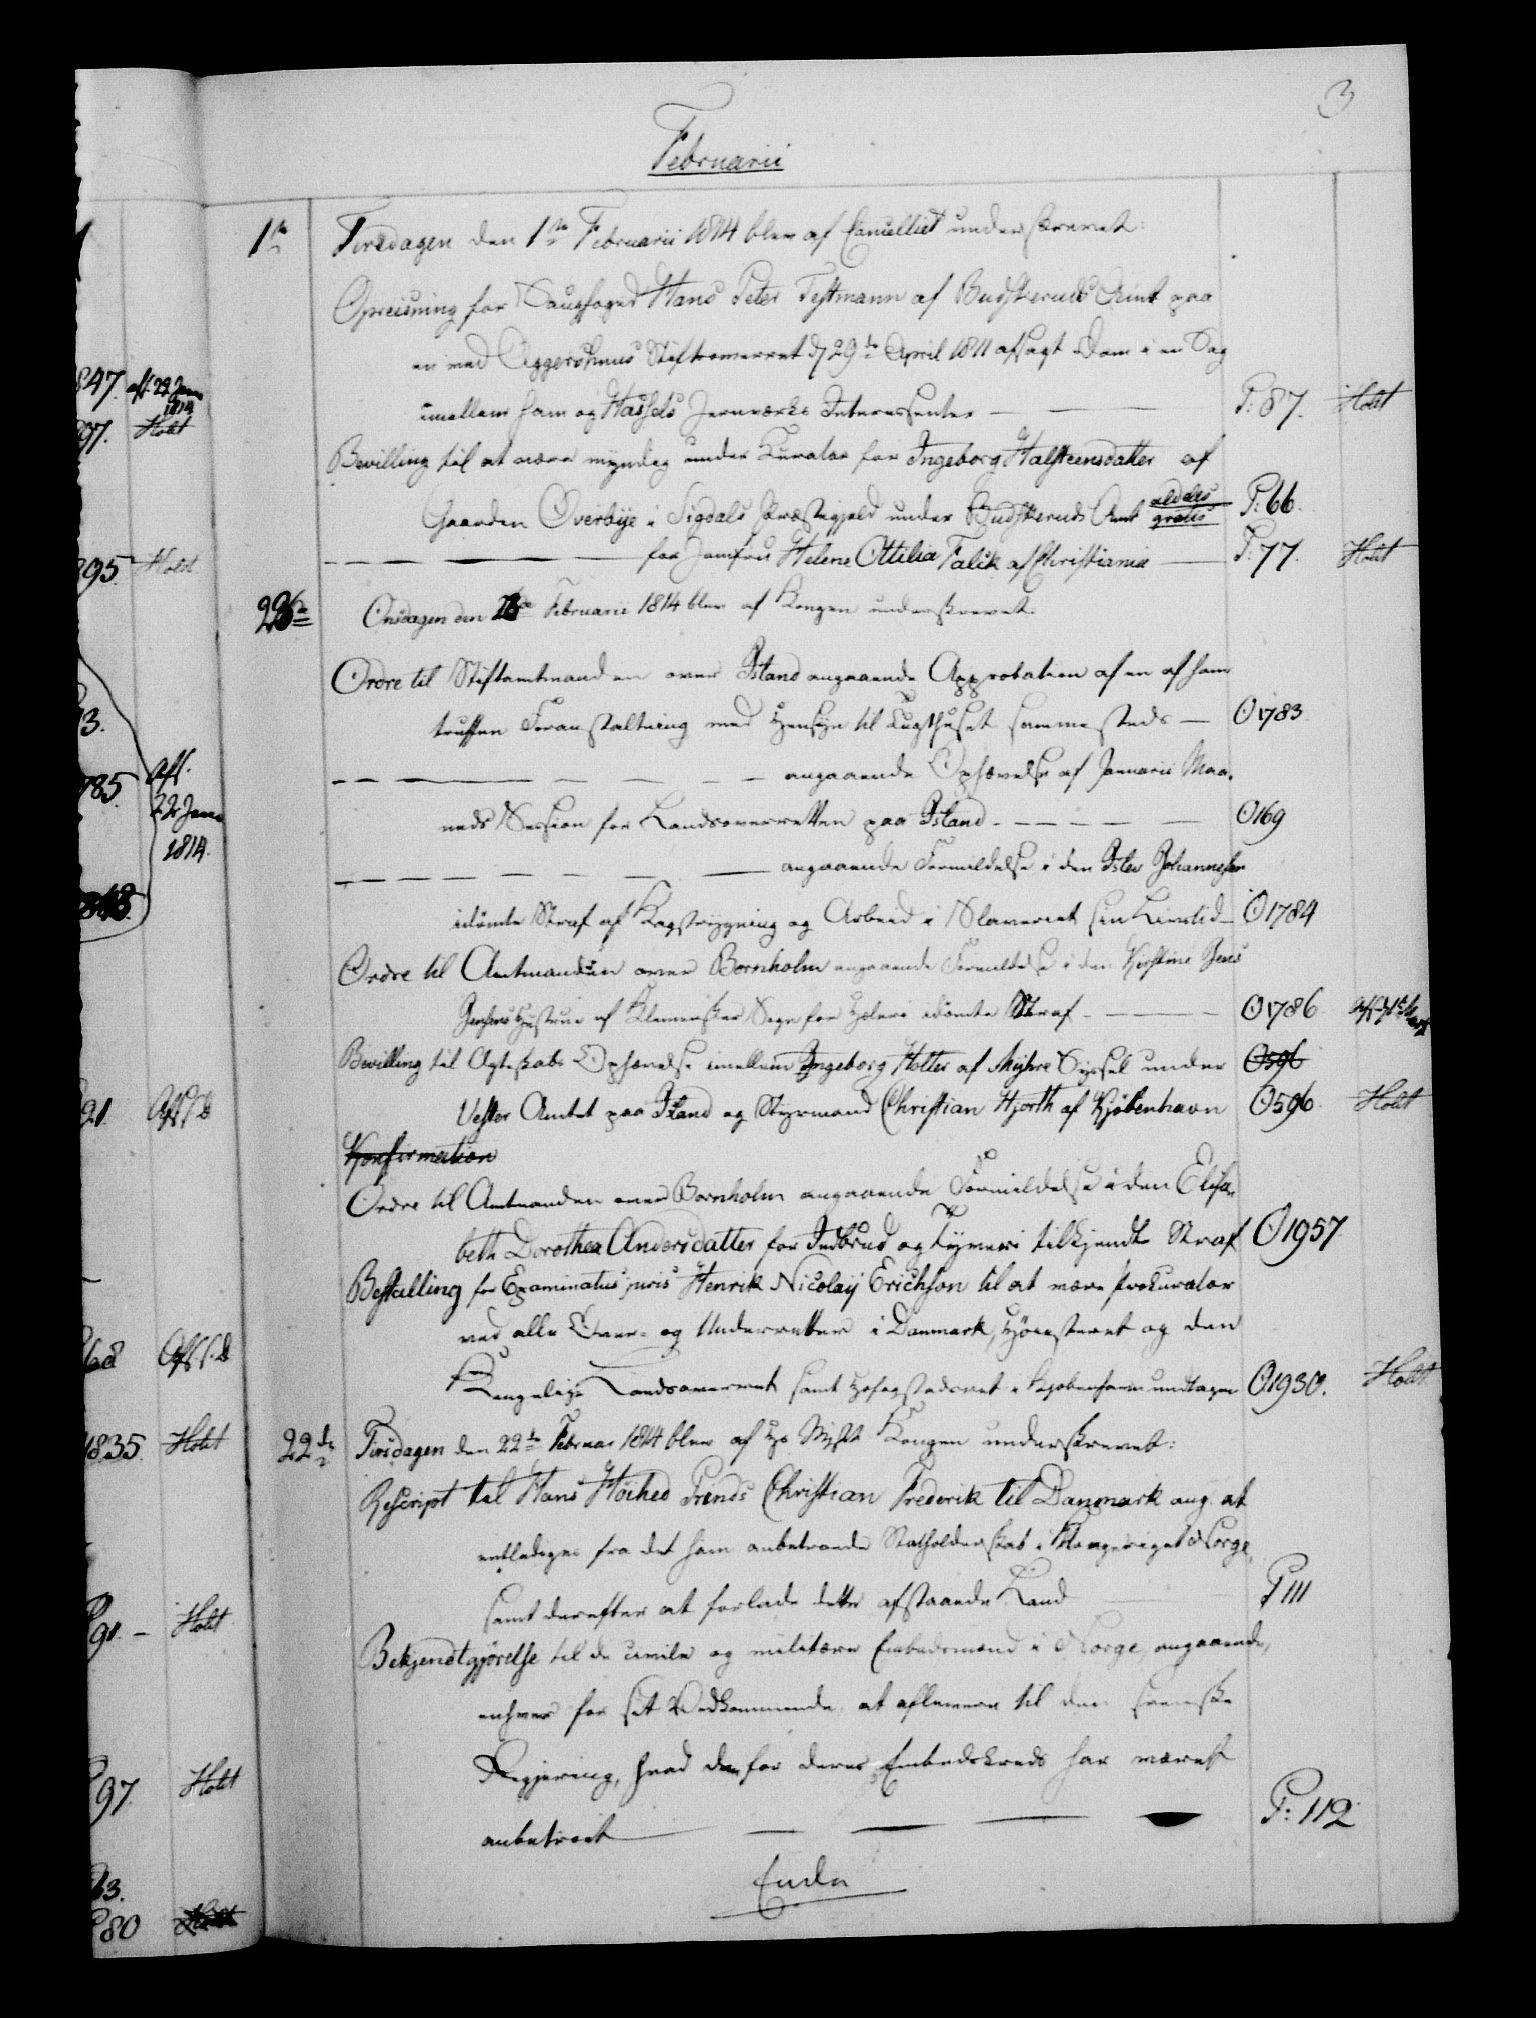 3
Februarii
1te Tirsdagen den 1te Februarii 1814 blev af Cancelliet underskrevet:
Opreisning for Saugfoged Hans Peter Testmann af Budskeruds Amt paa
en ved Aggershuus Stiftsoverret d. 29de April 1811 afsagt Dom i en Sag
imellem ham og Hassels Jernværks Interessenter — P: 87. Holst
Bevilling til at være myndig under Kurator for Ingeborg Halsteensdatter af
Gaarden Overbÿe i Sigdals Præstegjeld under Budskeruds Amt aldeles gratis P: 66.
— — — for Jomfru Helene Ottilia Falik af Christiania — P: 77. Holst
Onsdagen den Februarii 1814 blev af Kongen underskrevet:
Ordre til Stiftamtmanden over Island angaaende Approbation af en af ham
truffen Foranstaltning med Hensyn til Tugthuset sammesteds — O 1783
— — — — angaaende Ophævelse af Januarii Maa-
neds Session for Landsoverretten paa Island — — — O 169
— — — — angaaende Formildelse i den Islev Johannesen
idømte Straf af Kagstrygning og Arbeid i Slaveriet sin Livstid — O 1784
Ordre til Amtmanden over Bornholm angaaende Formildelse i den Kirstine Jens
Jensens Hustrue af Klemensker Sogn for Hæleri idømte Straf — — O 1786
Bevilling til Ægteskabs Ophævelse imellem Ingeborg Holter af Myhre Syssel under O 596
Vester Amtet paa Island og Styrmand Christian Hjorth af Kjøbenhavn O 596 Holst
Konfirmation
Ordre til Amtmanden over Bornholm angaaende Formildelse i den Elisa-
beth Dorothea Andersdatter for Indbrud og Tyveri tilkjendte Straf O 1957
Bestalling for Examinatus juris Henrik Nicolaÿ Erichsen til at være Prokurator
ved alle Over- og Underretter i Danmark, Høiesteret og den
Kongelige Landsoverret samt Hof og Stadsret i Kjøbenhavn undtagen O 1930. Holst
22de Tirsdagen den 22de Februar 1814 blev af Hs Mjst Kongen underskrevet:
Rescript til Hans Høihed Prinds Christian Frederik til Danmark ang. at
entlediges fra det ham anbetroede Statholderskab i Kongeriget Norge,
samt derefter at forlade dette afstaaede Land P 111
Bekjendtgjørelse til de civile og militære Embedsmænd i Norge, angaaende,
enhver for sit Vedkommende, at aflevere til den svenske
Regjering, hvad dem for deres Embedskreds har været
anbetroet — — — P: 112
Ende
847. aff. 22 Jan 1814
97. Holst
95. Holst
3.
785. Aff. 22 Jan 1814.
91
68
1835 Holst
P 91. — Holst
P 97 Holst
63.
P 80 Holst